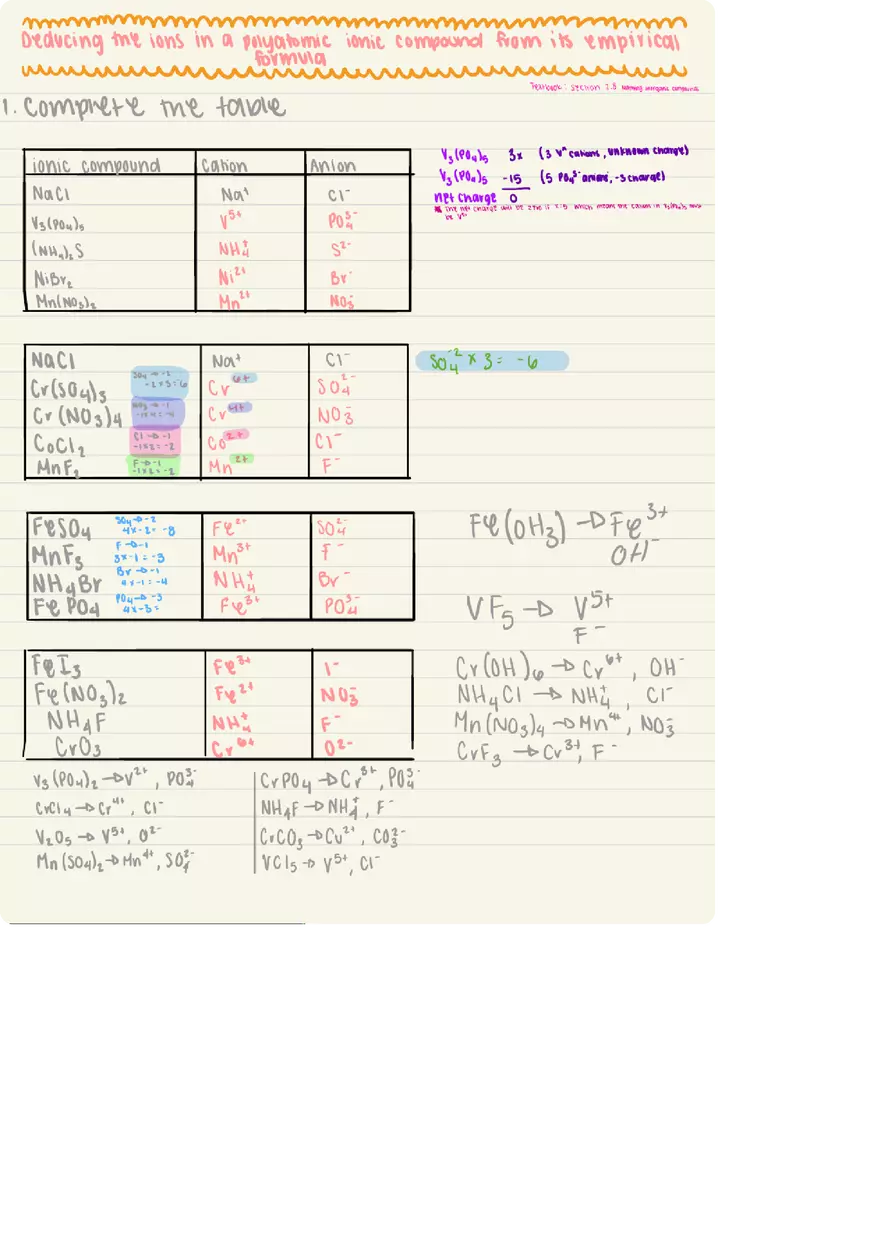 Deducing the ions in a polyatomic ionic compound from its empirical
formula
Textbook: Section 2.8 naming inorganic compounds
1. Complete the table
ionic compound Cation Anion
NaCl Na⁺ Cl⁻
V₃(PO₄)₅ V⁵⁺ PO₄³⁻
(NH₄)₂S NH₄⁺ S²⁻
NiBr₂ Ni²⁺ Br⁻
Mn(NO₃)₂ Mn²⁺ NO₃⁻
V₃(PO₄)₅ 3x (3 Vⁿ cations, unknown charge)
V₃(PO₄)₅ -15 (5 PO₄³⁻ anions, -3 charge)
net charge 0
The net charge will be zero if x=5. Which means the cation in V₃(PO₄)₅ must
be V⁵⁺
NaCl Na⁺ Cl⁻
Cr(SO₄)₃ SO₄ → -2 Cr⁶⁺ SO₄²⁻
-2×3=6
Cr(NO₃)₄ NO₃ → -1 Cr⁴⁺ NO₃⁻
CoCl₂ Cl → -1 Co²⁺ Cl⁻
-1×2=-2
MnF₂ F → -1 Mn²⁺ F⁻
-1×2=-2
SO₄⁻² × 3 = -6
FeSO₄ SO₄ → -2 Fe²⁺ SO₄²⁻
4×-2=-8
MnF₃ F → -1 Mn³⁺ F⁻
3×-1=-3
NH₄Br Br → -1 NH₄⁺ Br⁻
4×-1=-4
FePO₄ PO₄ → -3 Fe³⁺ PO₄³⁻
4×-3=
Fe(OH₃) → Fe³⁺
OH⁻
VF₅ → V⁵⁺
F⁻
FeI₃ Fe³⁺ I⁻
Fe(NO₃)₂ Fe²⁺ NO₃⁻
NH₄F NH₄⁺ F⁻
CrO₃ Cr⁶⁺ O²⁻
Cr(OH)₆ → Cr⁶⁺, OH⁻
NH₄Cl → NH₄⁺, Cl⁻
Mn(NO₃)₄ → Mn⁴⁺, NO₃⁻
CrF₃ → Cr³⁺, F⁻
V₃(PO₄)₂ → V²⁺, PO₄³⁻
CrCl₄ → Cr⁴⁺, Cl⁻
V₂O₅ → V⁵⁺, O²⁻
Mn(SO₄)₂ → Mn⁴⁺, SO₄²⁻
CrPO₄ → Cr³⁺, PO₄³⁻
NH₄F → NH₄⁺, F⁻
CrCO₃ → Cu²⁺, CO₃²⁻
VCl₅ → V⁵⁺, Cl⁻